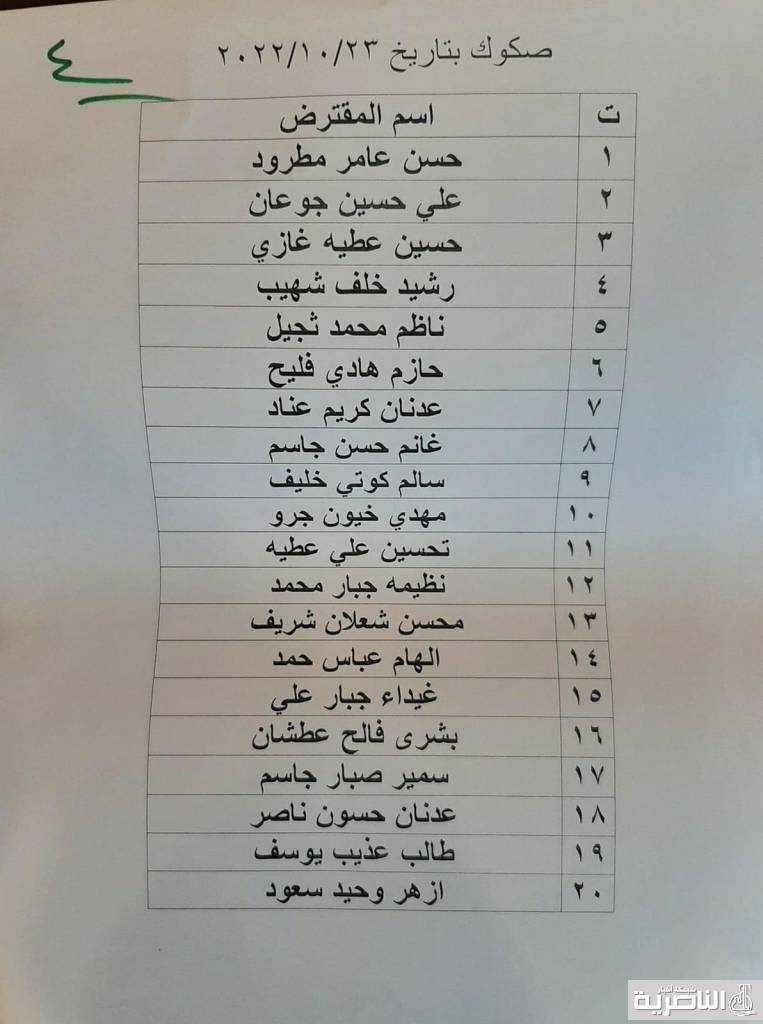 ٤
صكوك بتاريخ ٢٠٢٢/١٠/٢٣
ت اسم المقترض
١ حسن عامر مطرود
٢ علي حسين جوعان
٣ حسين عطيه غازي
٤ رشيد خلف شهيب
٥ ناظم محمد ثجيل
٦ حازم هادي فليح
٧ عدنان كريم عناد
٨ غانم حسن جاسم
٩ سالم كوتي خليف
١٠ مهدي خيون جرو
١١ تحسين علي عطيه
١٢ نظيمه جبار محمد
١٣ محسن شعلان شريف
١٤ الهام عباس حمد
١٥ غيداء جبار علي
١٦ بشرى فالح عطشان
١٧ سمير صبار جاسم
١٨ عدنان حسون ناصر
١٩ طالب عذيب يوسف
٢٠ ازهر وحيد سعود
شبكة أخبار
الناصرية